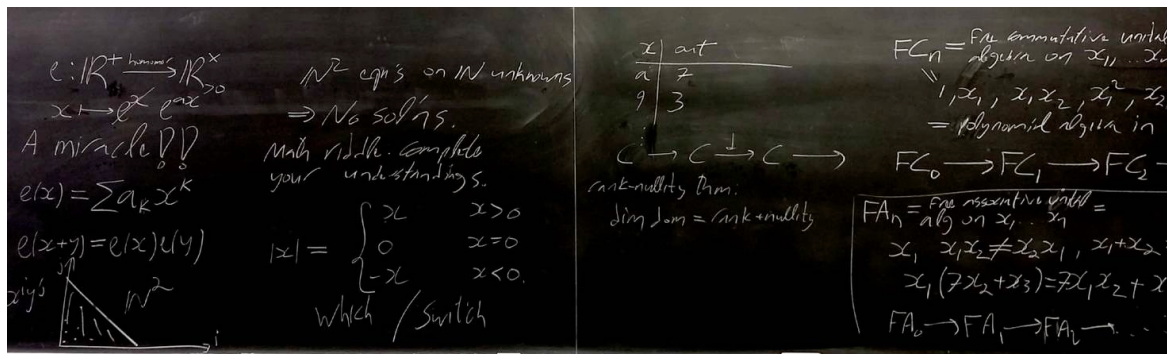 e: ℝ⁺ → ℝˣ>0
x ↦ eˣ e^{ax}
A miracle!!
e(x) = Σ aₖ xᵏ
e(x+y) = e(x)e(y)
xⁱyʲ's
j
ℕ²
i
ℕ² eqn's on ℕ unknowns
⇒ No sol'ns.
Math riddle. Complete
your understandings.
|x| = { x x>0
0 x=0
-x x<0.
Which / Switch
x | art
a | 7
9 | 3
C → C → C →
rank-nullity thm:
dim dom = rank + nullity
FCₙ = Free commutative unital
algebra on x₁, ... x₂
1, x₁, x₁x₂, x₁², x₂
= polynomial algebra in
FC₀ → FC₁ → FC₂
FAₙ = Free associative unital
alg on x₁ ... xₙ =
x₁ x₁x₂ ≠ x₂x₁, x₁+x₂
x₁(7x₂+x₃) = 7x₁x₂ + x
FA₀ → FA₁ → FA₂ → ...